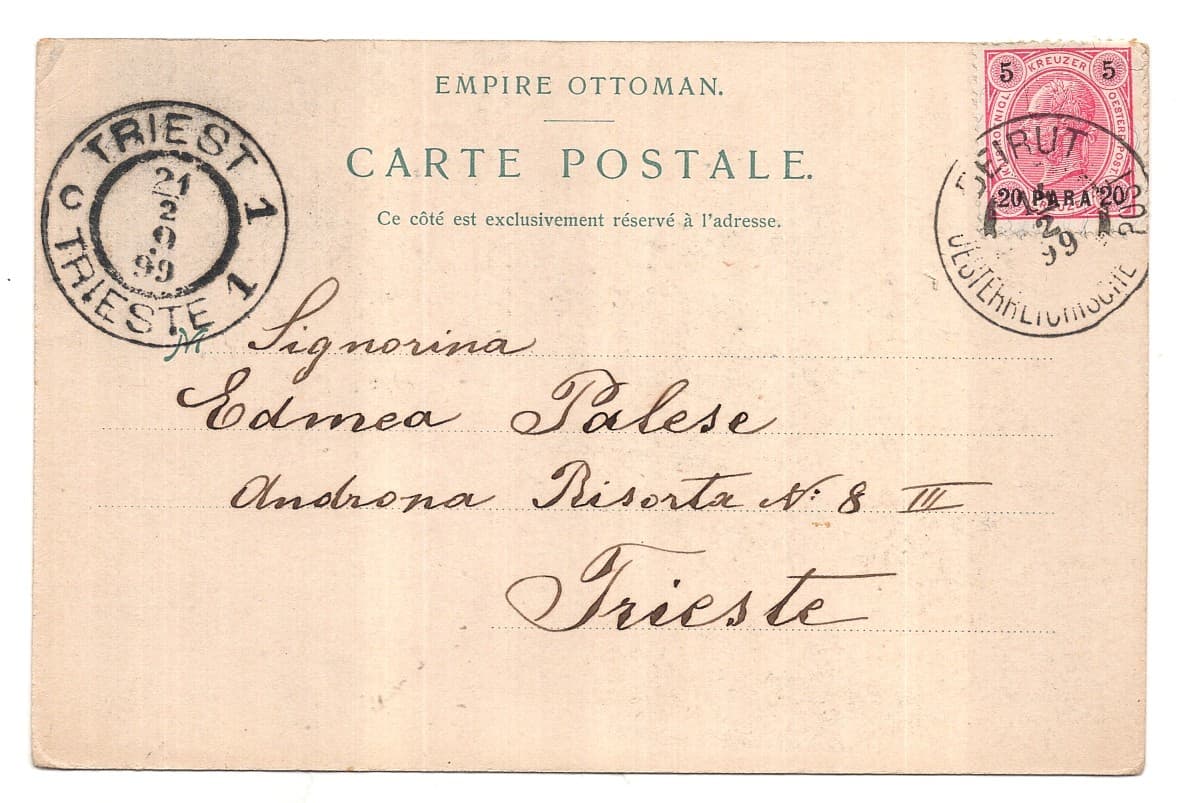 EMPIRE OTTOMAN.
CARTE POSTALE.
Ce côté est exclusivement réservé à l'adresse.
TRIEST 1
C
21
2
9
99
TRIESTE 1
5 KREUZER 5
20 PARA 20
BEIRUT
2
99
OESTERREICHISCHE POST
M
Signorina
Edmea Palese
Androna Risorta N: 8 III
Trieste